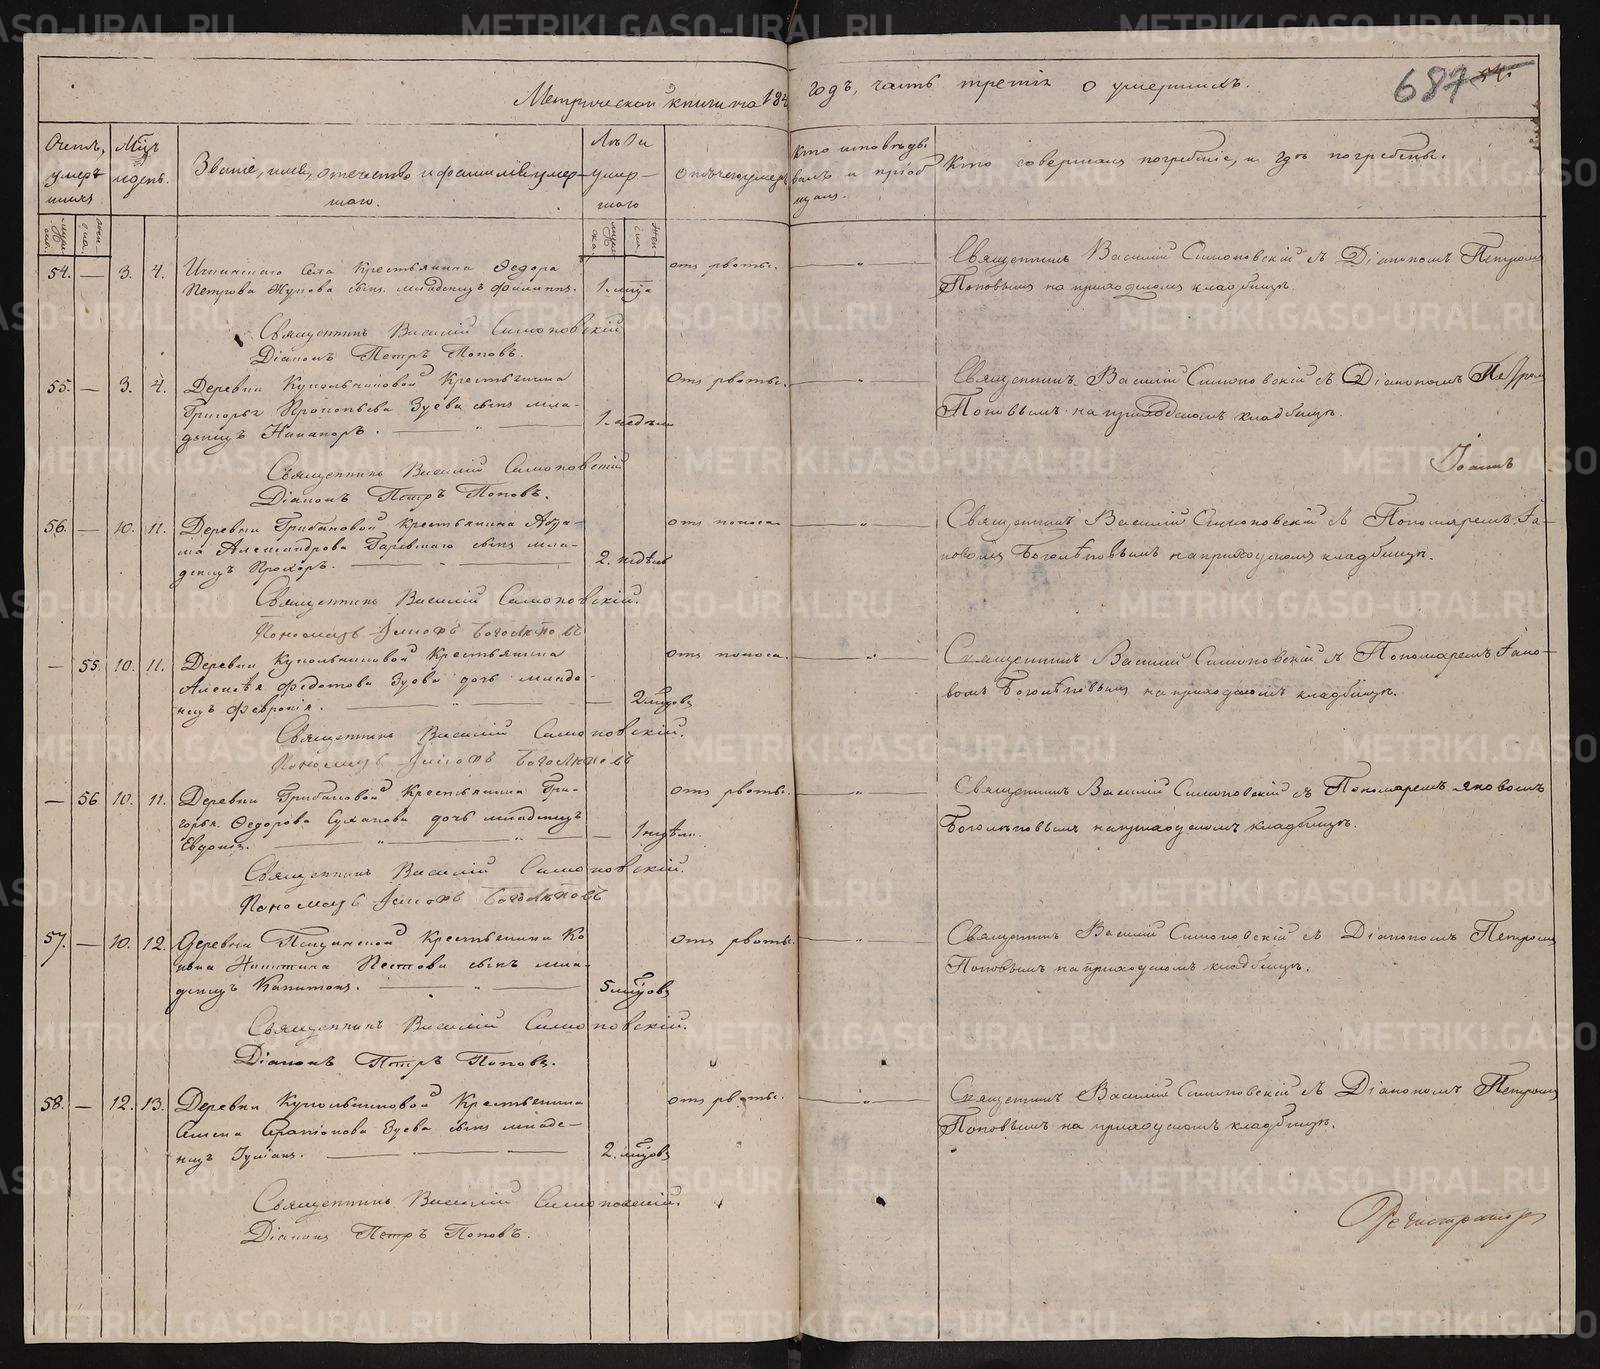 Метрической книги на 184 годъ, часть третія о умершихъ.
687 54.
Счетъ умершихъ
Мѣсяцъ и день.
Званіе, имя, отечество и фамилія умершаго.
Лѣта умершаго
Отъ чего умеръ
Кто исповѣдывалъ и пріобщалъ.
Кто совершалъ погребеніе, и гдѣ погребены.
54. — 3. 4. села Крестьянина Федора отъ рвоты. — „ — Священникъ Василій Симоновскій съ Діакономъ Петромъ
Петрова Жукова сынъ младенецъ Филиппъ. 1. мца Поповымъ на приходскомъ кладбищѣ.
Священникъ Василій Симоновскій
Діаконъ Петръ Поповъ.
55. — 3. 4. Деревни Кукольниковой Крестьянина отъ рвоты. — „ — Священникъ Василій Симоновскій съ Діакономъ Петромъ
Григорья Прокопьева Зуева сынъ мла- 1. недѣли Поповымъ на приходскомъ кладбищѣ.
денецъ Никаноръ. — „ —
Іоаннъ
Священникъ Василій Симоновскій
Діаконъ Петръ Поповъ.
56. — 10. 11. Деревни Грибановой крестьянина Абра- отъ поноса — „ — Священникъ Василій Симоновскій съ Пономаремъ Іа-
ма Александрова сынъ мла- ковомъ Боголѣповымъ на приходскомъ кладбищѣ.
денецъ Прохоръ. — „ — 2. недѣль
Священникъ Василій Симоновскій.
Пономарь Іаковъ Боголѣповъ
— 55. 10. 11. Деревни Кукольниковой Крестьянина отъ поноса. — „ — Священникъ Василій Симоновскій съ Пономаремъ Іако-
Алексѣя Федотова Зуева дочь младе- вомъ Боголѣповымъ на приходскомъ кладбищѣ.
нецъ Февронія. — „ — 2 мцовъ
Священникъ Василій Симоновскій.
Пономарь Іаковъ Боголѣповъ
— 56 10. 11. Деревни Грибановой Крестьянина Гри- отъ рвоты. — „ — Священникъ Василій Симоновскій съ Пономаремъ Яковомъ
горья Федорова Суханова дочь младенецъ — 1 недѣли. Боголѣповымъ на приходскомъ кладбищѣ.
Евдокія. — „ — „ —
Священникъ Василій Симоновскій.
Пономарь Іаковъ Боголѣповъ
57. — 10. 12. Деревни Крестьянина Ко- отъ рвоты. — „ — Священникъ Василій Симоновскій съ Діакономъ Петромъ
нона Никитина Пестова сынъ мла- Поповымъ на приходскомъ кладбищѣ.
денецъ Капитонъ. — „ — 5 мцовъ
Священникъ Василій Симоновскій.
Діаконъ Петръ Поповъ.
58. — 12. 13. Деревни Кукольниковой Крестьянина отъ рвоты. — „ — Священникъ Василій Симоновскій съ Діакономъ Петромъ
Зуева сынъ младе- Поповымъ на приходскомъ кладбищѣ.
нецъ Іуліанъ. — „ — 2. мцовъ
Священникъ Василій Симоновскій.
Діаконъ Петръ Поповъ.
Регистраторъ
METRIKI.GASO-URAL.RU